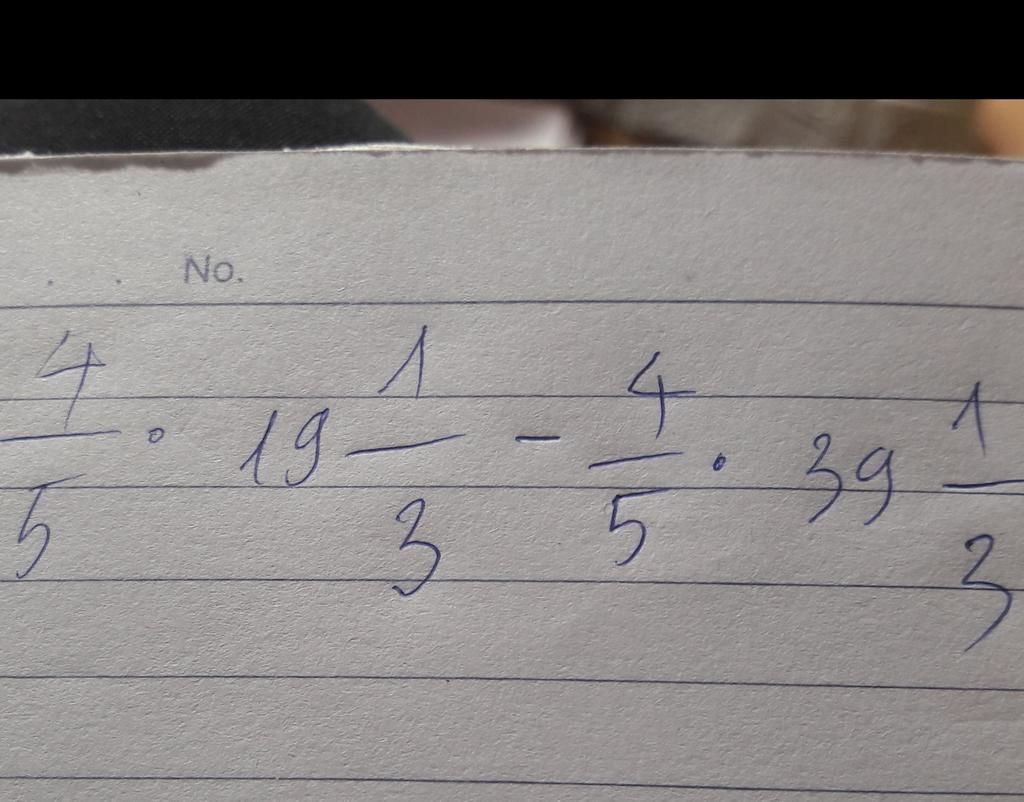 No.
4/5 · 19 1/3 - 4/5 · 39 1/3